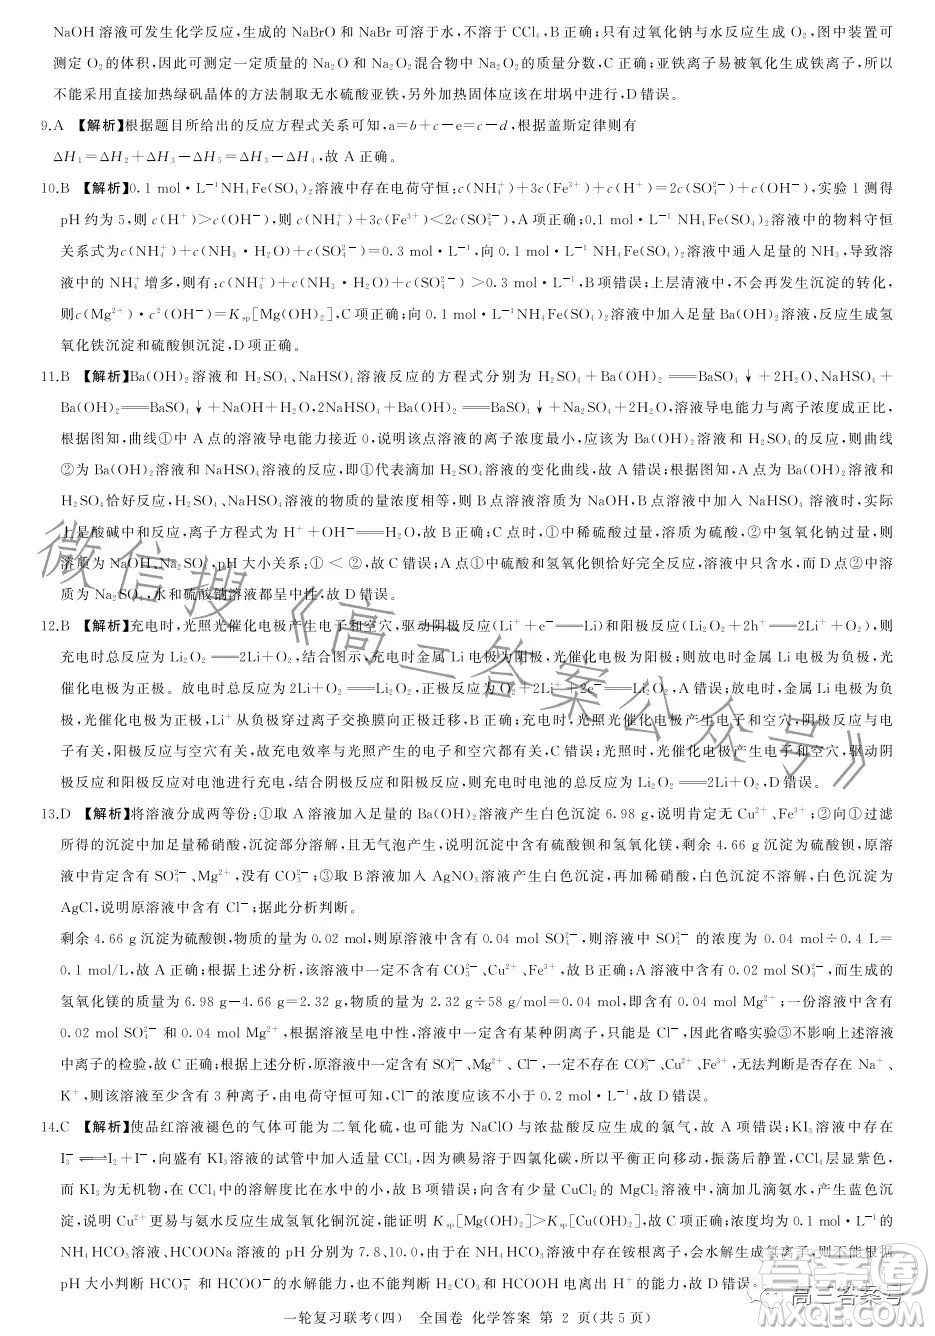 NaOH 溶液可发生化学反应,生成的 NaBrO 和 NaBr 可溶于水,不溶于 CCl₄,B 正确;只有过氧化钠与水反应生成 O₂,图中装置可
测定 O₂ 的体积,因此可测定一定质量的 Na₂O 和 Na₂O₂ 混合物中 Na₂O₂ 的质量分数,C 正确;亚铁离子易被氧化生成铁离子,所以
不能采用直接加热绿矾晶体的方法制取无水硫酸亚铁,另外加热固体应该在坩埚中进行,D 错误。
9.A 【解析】根据题目所给出的反应方程式关系可知,a=b+c-e=c-d,根据盖斯定律则有
ΔH₁=ΔH₂+ΔH₃-ΔH₅=ΔH₃-ΔH₄,故 A 正确。
10.B 【解析】0.1 mol·L⁻¹NH₄Fe(SO₄)₂溶液中存在电荷守恒:c(NH₄⁺)+3c(Fe³⁺)+c(H⁺)=2c(SO₄²⁻)+c(OH⁻),实验 1 测得
pH 约为 5,则 c(H⁺)>c(OH⁻),则 c(NH₄⁺)+3c(Fe³⁺)<2c(SO₄²⁻),A 项正确;0.1 mol·L⁻¹NH₄Fe(SO₄)₂溶液中的物料守恒
关系式为c(NH₄⁺)+c(NH₃·H₂O)+c(SO₄²⁻)=0.3 mol·L⁻¹,向0.1 mol·L⁻¹NH₄Fe(SO₄)₂溶液中通入足量的 NH₃,导致溶
液中的 NH₄⁺ 增多,则有:c(NH₄⁺)+c(NH₃·H₂O)+c(SO₄²⁻)>0.3 mol·L⁻¹,B项错误;上层清液中,不会再发生沉淀的转化,
则c(Mg²⁺)·c²(OH⁻)=Ksp[Mg(OH)₂],C 项正确;向 0.1 mol·L⁻¹NH₄Fe(SO₄)₂溶液中加入足量 Ba(OH)₂溶液,反应生成氢
氧化铁沉淀和硫酸钡沉淀,D项正确。
11.B 【解析】Ba(OH)₂溶液和 H₂SO₄、NaHSO₄溶液反应的方程式分别为 H₂SO₄+Ba(OH)₂══BaSO₄↓+2H₂O、NaHSO₄+
Ba(OH)₂══BaSO₄↓+NaOH+H₂O,2NaHSO₄+Ba(OH)₂══BaSO₄↓+Na₂SO₄+2H₂O,溶液导电能力与离子浓度成正比,
根据图知,曲线①中 A 点的溶液导电能力接近 0,说明该点溶液离子浓度最小,应该为 Ba(OH)₂溶液和 H₂SO₄的反应,则曲线
②为 Ba(OH)₂溶液和 NaHSO₄溶液的反应,即①代表滴加 H₂SO₄溶液的变化曲线,故 A 错误;根据图知,A 点为 Ba(OH)₂溶液和
H₂SO₄恰好完全反应,NaHSO₄溶液的物质的量浓度相等,则 B 点溶液溶质为 NaOH,B点溶液中加入 NaHSO₄溶液时,实际
上是酸碱中和反应,离子方程式为 H⁺+OH⁻══H₂O,故 B 正确;C 点时,①中稀硫酸过量,溶质为硫酸,②中氢氧化钠过量,则
溶质为 NaOH、Na₂SO₄,pH 大小关系:①<②,故 C 错误;A点①中硫酸和氢氧化钡恰好完全反应,溶液中只含水,而 D 点②中溶
质为 Na₂SO₄,水和硫酸钠溶液都呈中性,故 D 错误。
12.B 【解析】充电时,光照光催化电极产生电子和空穴,驱动阴极反应(Li⁺+e⁻══Li)和阳极反应(Li₂O₂+2h⁺══2Li⁺+O₂),则
充电时总反应为 Li₂O₂══2Li+O₂,结合图示,充电时金属 Li 电极为阳极,光催化电极为阳极;则放电时金属 Li 电极为负极,光
催化电极为正极。放电时总反应为 2Li+O₂══Li₂O₂,正极反应为 O₂+2Li⁺+2e⁻══Li₂O₂,A 错误;放电时,金属 Li 电极为负
极,光催化电极为正极,Li⁺从负极穿过离子交换膜向正极迁移,B 正确;充电时,光照光催化电极产生电子和空穴,阴极反应与电
子有关,阳极反应与空穴有关,故充电效率与光照产生的电子和空穴都有关,C 错误;光照时,光催化电极产生电子和空穴,驱动阴
极反应和阳极反应对电池进行充电,结合阴极反应和阳极反应,则充电时电池的总反应为 Li₂O₂══2Li+O₂,D 错误。
13.D 【解析】将溶液分成两等份:①取 A 溶液加入足量的 Ba(OH)₂溶液产生白色沉淀 6.98 g,说明肯定无 Cu²⁺、Fe³⁺;②向过滤
所得的沉淀中加足量稀硝酸,沉淀部分溶解,且无气泡产生,说明沉淀中含有硫酸钡和氢氧化镁,剩余 4.66 g 是硫酸钡,原溶
液中肯定含有 SO₄²⁻、Mg²⁺,没有 CO₃²⁻;③取 B 溶液加入 AgNO₃溶液产生白色沉淀,再加稀硝酸,白色沉淀不溶解,白色沉淀为
AgCl,说明原溶液中含有 Cl⁻;据此分析判断。
剩余 4.66 g沉淀为硫酸钡,物质的量为 0.02 mol,则原溶液中含有 0.04 mol SO₄²⁻,则溶液中 SO₄²⁻ 的浓度为 0.04 mol÷0.4 L=
0.1 mol/L,故 A 正确;根据上述分析,该溶液中一定不含有 CO₃²⁻、Cu²⁺、Fe³⁺,故 B 正确;A溶液中含有 0.02 mol SO₄²⁻,而生成的
氢氧化镁的质量为 6.98 g-4.66 g=2.32 g,物质的量为 2.32 g÷58 g/mol=0.04 mol,即含有 0.04 mol Mg²⁺;一份溶液中含有
0.02 mol SO₄²⁻ 和 0.04 mol Mg²⁺,根据溶液呈电中性,溶液中一定含有某种阴离子,只能是 Cl⁻,因此省略实验③不影响上述溶液
中离子的检验,故 C 正确;根据上述分析,原溶液中一定含有 SO₄²⁻、Mg²⁺、Cl⁻,一定不存在 CO₃²⁻、Cu²⁺、Fe³⁺,无法判断是否存在 Na⁺、
K⁺,则该溶液至少含有 3 种离子,由电荷守恒可知,Cl⁻的浓度一定不小于 0.2 mol·L⁻¹,故 D 错误。
14.C 【解析】使品红溶液褪色的气体可能为二氧化硫,也可能为 NaClO 与浓盐酸反应生成的氯气,故 A 错误;KI₃溶液中存在
I₃⁻⇌I₂+I⁻,向盛有 KI₃溶液的试管中加入适量 CCl₄,因为碘易溶于四氯化碳,所以平衡正向移动,振荡后静置,CCl₄层显紫色,
而 KI₃为无机物,在 CCl₄中的溶解度比在水中的小,故 B 项错误;向含有少量 CuCl₂ 的 MgCl₂溶液中,滴加几滴氨水,产生蓝色沉
淀,说明 Cu²⁺ 更易与氨水反应生成氢氧化铜沉淀,能证明 Ksp[Mg(OH)₂]>Ksp[Cu(OH)₂],故 C 正确;浓度均为 0.1 mol·L⁻¹的
NH₄HCO₃溶液、HCOONa 溶液的 pH 分别为 7.8、10.0,由于在 NH₄HCO₃溶液中存在铵根离子,会水解生成氢离子,则不能根据
pH 大小判断 HCO₃⁻ 和 HCOO⁻的水解能力,也不能判断出 H₂CO₃ 和 HCOOH 电离出 H⁺的能力,故 D 错误。
一轮复习联考(四) 全国卷 化学答案 第 2 页(共 5 页)
微信搜《高三答案公众号》
高三答案号
答案圈